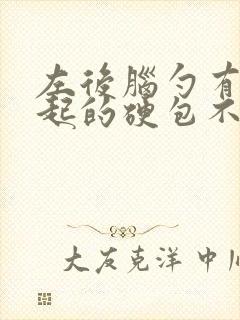 左後腦勺有
起的硬包不
大友克洋 中川